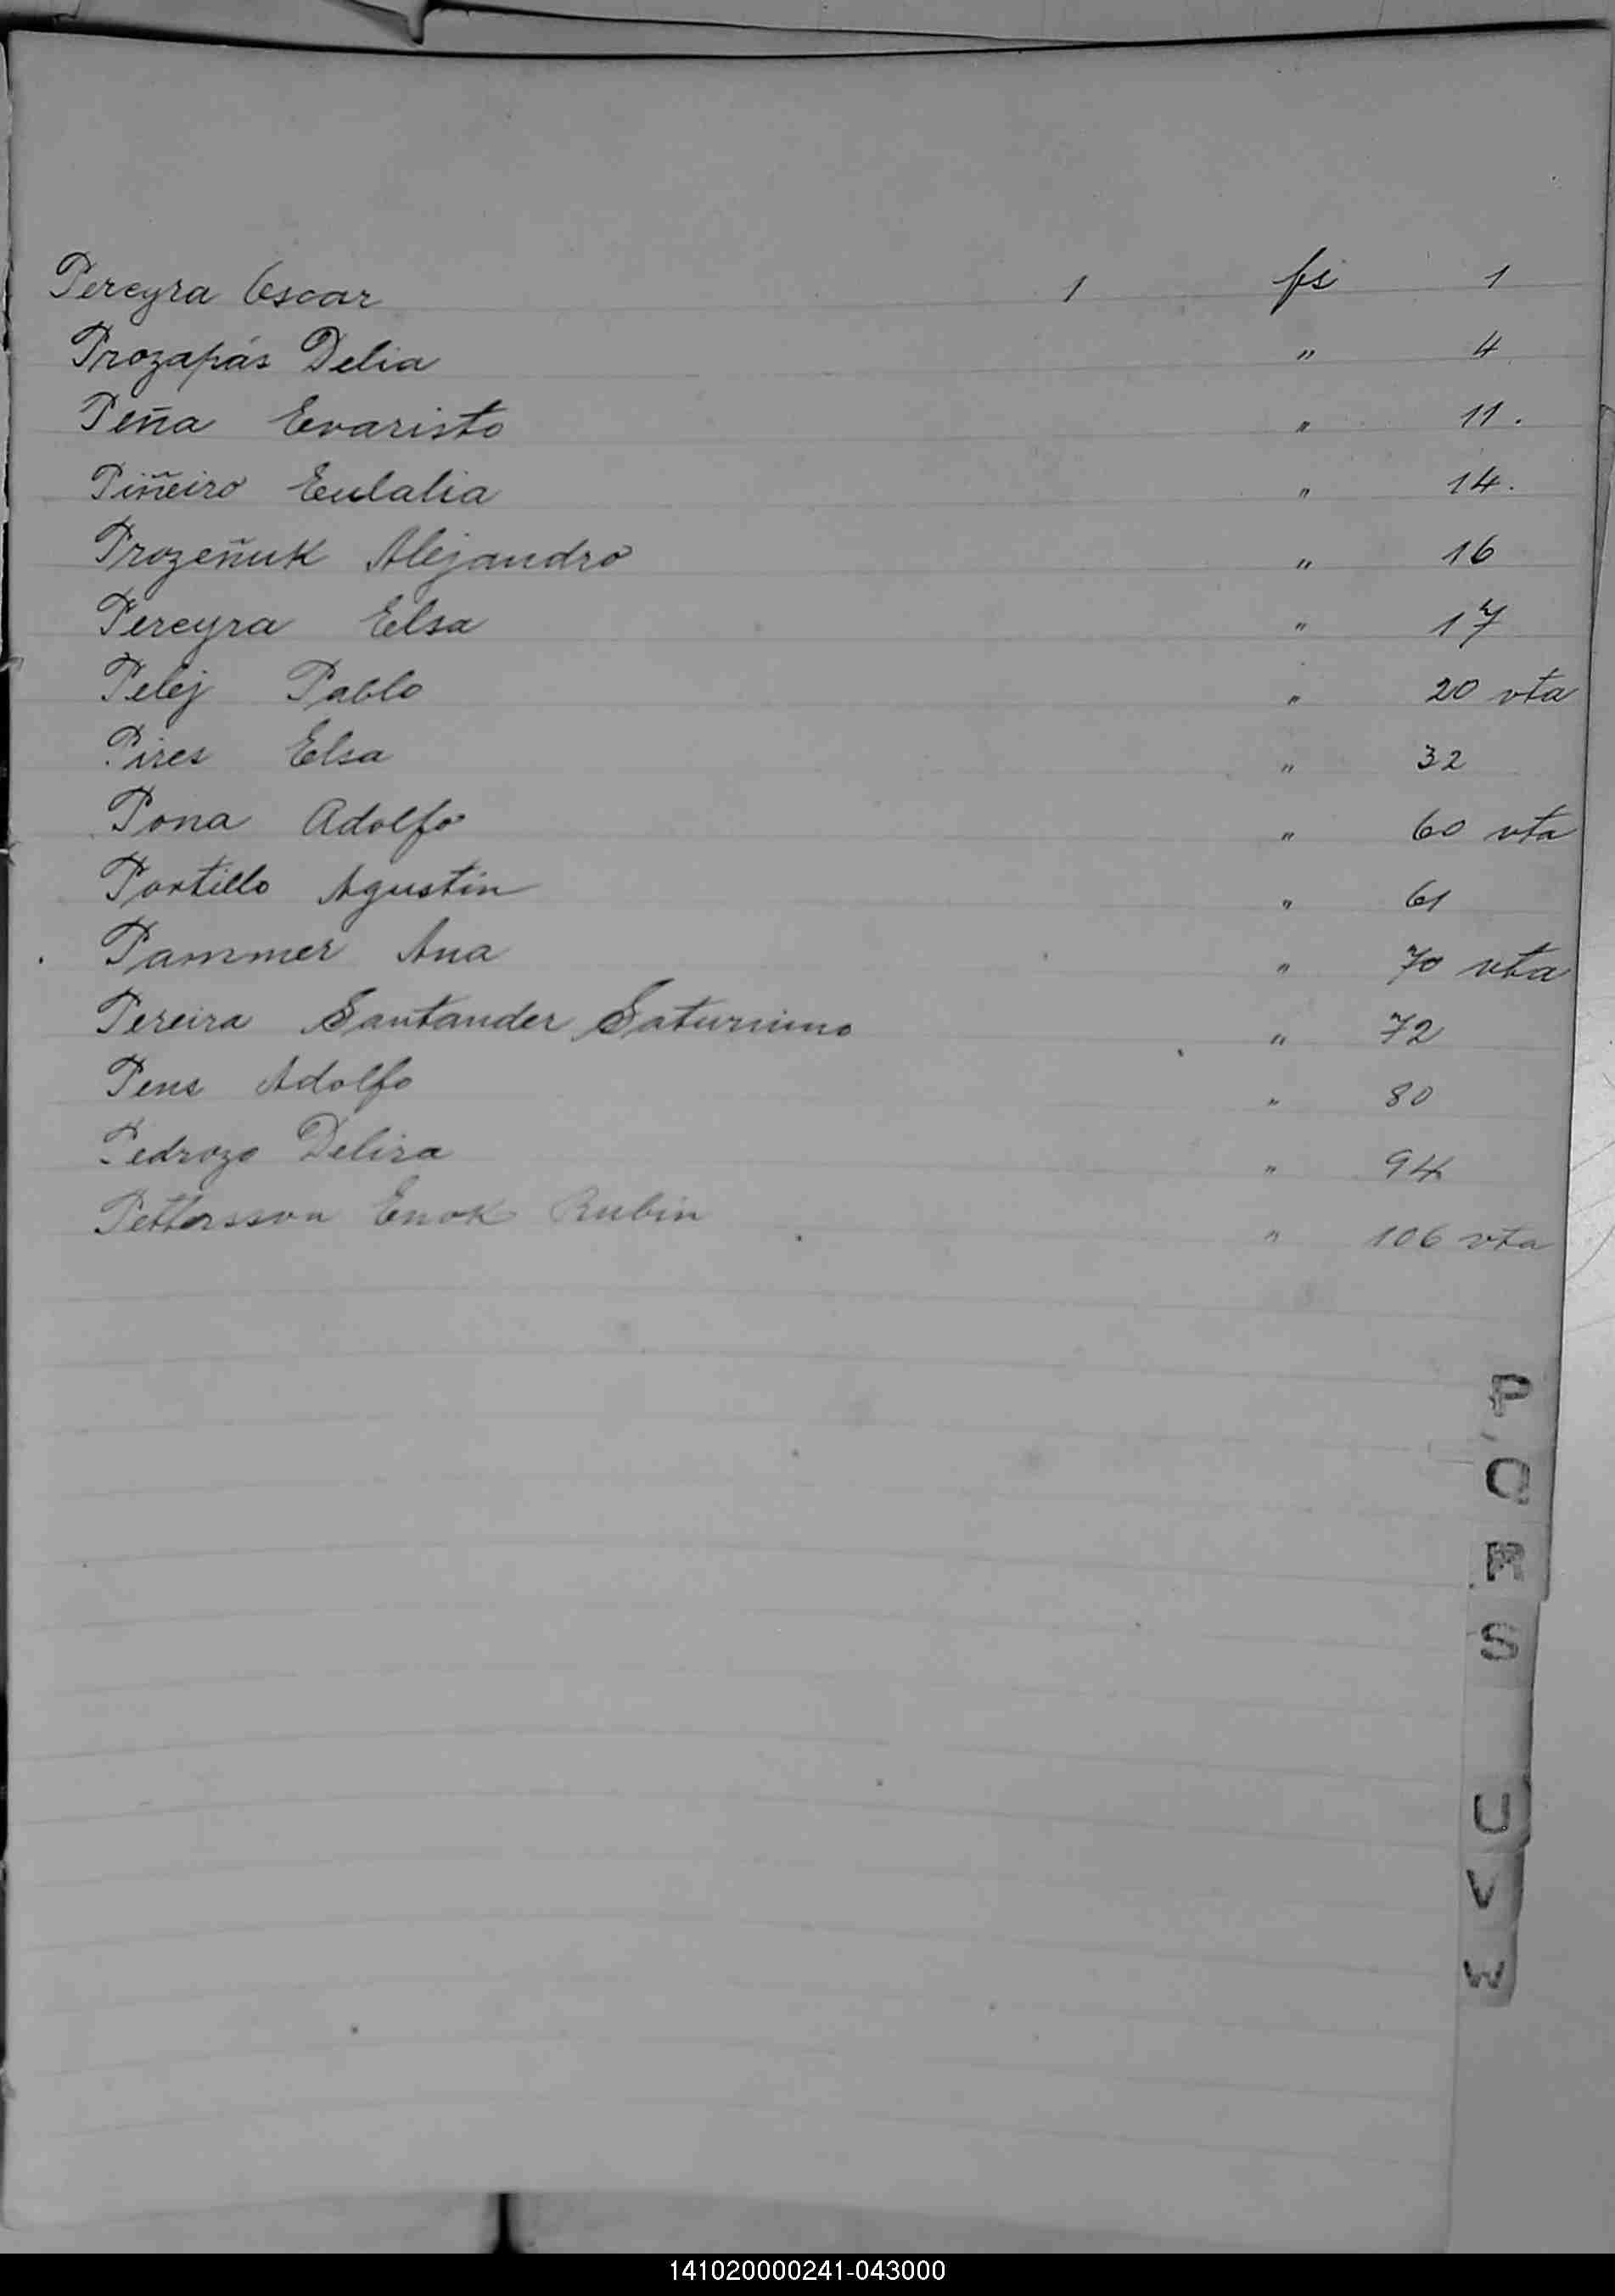 Pereyra Oscar 1 fs 1
Prozapás Delia " 4
Peña Evaristo " 11.
Piñeiro Eulalia " 14.
Prozeñuk Alejandro " 16
Pereyra Elsa " 17
Pelej Pablo " 20 vta
Pires Elsa " 32
Pona Adolfo " 60 vta
Portillo Agustin " 61
Pammer Ana " 70 vta
Pereira Santander Saturnino " 72
Pens Adolfo " 80
Pedrozo Delira " 94
Pettersson Enok Rubin " 106 vta
P
Q
R
S
U
V
W
141020000241-043000